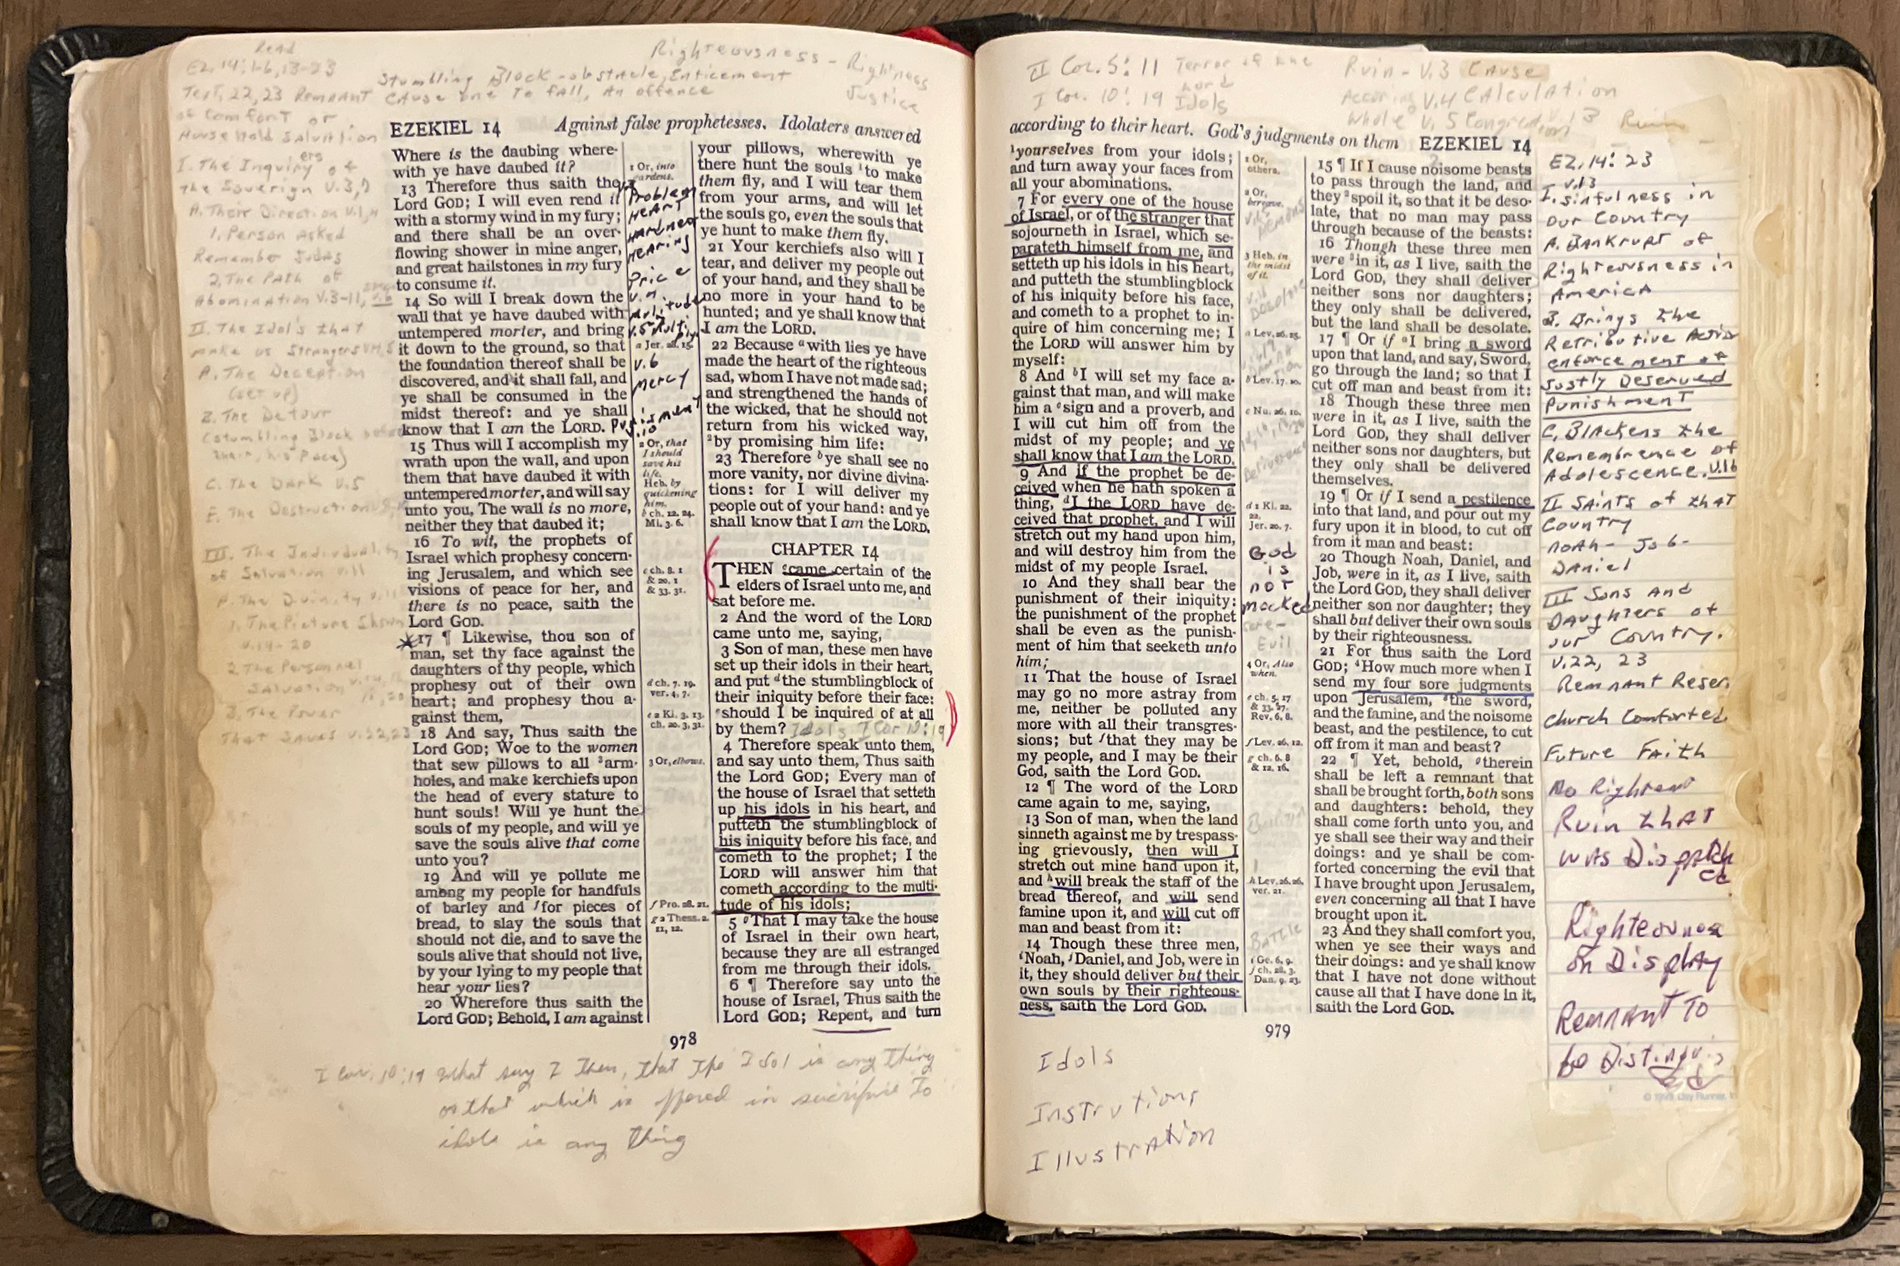 Read
Ez. 14:1-6, 13-23
Text, 22, 23 Remnant
of Comfort or
Household Salvation
I. The Inquirers of
the Soverign V.3,
A. Their Direction V.1,4
1. Person Asked
Remember Judas
2. The Path of
Abomination V.3-11, V.6
II. The Idol's that
make us Strangers V.
A. The Deception
(set up)
B. The Detour
(stumbling Block before
their, his face)
C. The Dark V.5
E. The Destruction
III. The Individuality
of Salvation V.11
A. The Divinity V.11
1. The Picture Shown
V.14-20
2. The Personnel
Salvation V.14,
B. The Power
That Saves V.22,23
Stumbling Block - obstacle, Enticement
Cause one to fall, An offence
Righteousness - Rightness
Justice
EZEKIEL 14 Against false prophetesses. Idolaters answered
Where is the daubing where-
with ye have daubed it?
13 Therefore thus saith the
Lord GOD; I will even rend it
with a stormy wind in my fury;
and there shall be an over-
flowing shower in mine anger,
and great hailstones in my fury
to consume it.
14 So will I break down the
wall that ye have daubed with
untempered morter, and bring
it down to the ground, so that
the foundation thereof shall be
discovered, and it shall fall, and
ye shall be consumed in the
midst thereof: and ye shall
know that I am the LORD.
15 Thus will I accomplish my
wrath upon the wall, and upon
them that have daubed it with
untempered morter, and will say
unto you, The wall is no more,
neither they that daubed it;
16 To wit, the prophets of
Israel which prophesy concern-
ing Jerusalem, and which see
visions of peace for her, and
there is no peace, saith the
Lord GOD.
17 ¶ Likewise, thou son of
man, set thy face against the
daughters of thy people, which
prophesy out of their own
heart; and prophesy thou a-
gainst them,
18 And say, Thus saith the
Lord GOD; Woe to the women
that sew pillows to all ³arm-
holes, and make kerchiefs upon
the head of every stature to
hunt souls! Will ye hunt the
souls of my people, and will ye
save the souls alive that come
unto you?
19 And will ye pollute me
among my people for handfuls
of barley and ᶠfor pieces of
bread, to slay the souls that
should not die, and to save the
souls alive that should not live,
by your lying to my people that
hear your lies?
20 Wherefore thus saith the
Lord GOD; Behold, I am against
1 Or, into
gardens.
Problem
HEART
Hardness
Hearing
Price
V.4
V.5
a Jer. 28. 15.
V.6
mercy
V.10
2 Or, that
I should
save his
life.
Heb. by
quickening
him.
b ch. 12. 24.
Mi. 3. 6.
c ch. 8. 1
& 20. 1
& 33. 31.
d ch. 7. 19.
ver. 4, 7.
e 2 Ki. 3. 13.
ch. 20. 3, 31.
3 Or, elbows.
f Pro. 28. 21.
g 2 Thess. 2.
11, 12.
your pillows, wherewith ye
there hunt the souls ¹to make
them fly, and I will tear them
from your arms, and will let
the souls go, even the souls that
ye hunt to make them fly.
21 Your kerchiefs also will I
tear, and deliver my people out
of your hand, and they shall be
no more in your hand to be
hunted; and ye shall know that
I am the LORD.
22 Because ᵃwith lies ye have
made the heart of the righteous
sad, whom I have not made sad;
and strengthened the hands of
the wicked, that he should not
return from his wicked way,
²by promising him life:
23 Therefore ᵇye shall see no
more vanity, nor divine divina-
tions: for I will deliver my
people out of your hand: and ye
shall know that I am the LORD.
CHAPTER 14
THEN ᶜcame certain of the
elders of Israel unto me, and
sat before me.
2 And the word of the LORD
came unto me, saying,
3 Son of man, these men have
set up their idols in their heart,
and put ᵈthe stumblingblock of
their iniquity before their face:
ᵉshould I be inquired of at all
by them? Idols I Cor 10:19
4 Therefore speak unto them,
and say unto them, Thus saith
the Lord GOD; Every man of
the house of Israel that setteth
up his idols in his heart, and
putteth the stumblingblock of
his iniquity before his face, and
cometh to the prophet; I the
LORD will answer him that
cometh according to the multi-
tude of his idols;
5 ᵍThat I may take the house
of Israel in their own heart,
because they are all estranged
from me through their idols.
6 ¶ Therefore say unto the
house of Israel, Thus saith the
Lord GOD; Repent, and turn
978
I Cor. 10:19 What say I then, that the Idol is any thing
or that which is offered in sacrifice to
idols is any thing
II Cor. 5:11 Terror of the
Lord
I Cor. 10:19 Idols
Ruin - V.3 Cause
V.4 Calculation
Whole V.5
according to their heart. God's judgments on them EZEKIEL 14
¹yourselves from your idols;
and turn away your faces from
all your abominations.
7 For every one of the house
of Israel, or of the stranger that
sojourneth in Israel, which se-
parateth himself from me, and
setteth up his idols in his heart,
and putteth the stumblingblock
of his iniquity before his face,
and cometh to a prophet to in-
quire of him concerning me; I
the LORD will answer him by
myself:
8 And ᵇI will set my face a-
gainst that man, and will make
him a ᶜsign and a proverb, and
I will cut him off from the
midst of my people; and ye
shall know that I am the LORD.
9 And if the prophet be de-
ceived when he hath spoken a
thing, ᵈI the LORD have de-
ceived that prophet, and I will
stretch out my hand upon him,
and will destroy him from the
midst of my people Israel.
10 And they shall bear the
punishment of their iniquity:
the punishment of the prophet
shall be even as the punish-
ment of him that seeketh unto
him;
11 That the house of Israel
may go no more astray from
me, neither be polluted any
more with all their transgres-
sions; but ᶠthat they may be
my people, and I may be their
God, saith the Lord GOD.
12 ¶ The word of the LORD
came again to me, saying,
13 Son of man, when the land
sinneth against me by trespass-
ing grievously, then will I
stretch out mine hand upon it,
and ʰwill break the staff of the
bread thereof, and will send
famine upon it, and will cut off
man and beast from it:
14 Though these three men,
ⁱNoah, ʲDaniel, and Job, were in
it, they should deliver but their
own souls by their righteous-
ness, saith the Lord GOD.
1 Or,
others.
2 Or,
bereave.
3 Heb. in
the midst
of it.
a Lev. 26. 25.
b Lev. 17. 10.
c Nu. 26. 10.
d 1 Ki. 22.
22.
Jer. 20. 7.
God
is
not
mocked
Evil
4 Or, Also
when.
e ch. 5. 17
& 33. 27.
Rev. 6. 8.
f Lev. 26. 12.
g ch. 6. 8
& 12. 16.
h Lev. 26. 26.
ver. 21.
Battle
i Ge. 6. 9.
j ch. 28. 3.
Dan. 9. 23.
15 ¶ If I cause noisome beasts
to pass through the land, and
they ²spoil it, so that it be deso-
late, that no man may pass
through because of the beasts:
16 Though these three men
were ³in it, as I live, saith the
Lord GOD, they shall deliver
neither sons nor daughters;
they only shall be delivered,
but the land shall be desolate.
17 ¶ Or if ᵃI bring a sword
upon that land, and say, Sword,
go through the land; so that I
cut off man and beast from it:
18 Though these three men
were in it, as I live, saith the
Lord GOD, they shall deliver
neither sons nor daughters, but
they only shall be delivered
themselves.
19 ¶ Or if I send a pestilence
into that land, and pour out my
fury upon it in blood, to cut off
from it man and beast:
20 Though Noah, Daniel, and
Job, were in it, as I live, saith
the Lord GOD, they shall deliver
neither son nor daughter; they
shall but deliver their own souls
by their righteousness.
21 For thus saith the Lord
GOD; ⁴How much more when I
send my four sore judgments
upon Jerusalem, ᵉthe sword,
and the famine, and the noisome
beast, and the pestilence, to cut
off from it man and beast?
22 ¶ Yet, behold, ᵍtherein
shall be left a remnant that
shall be brought forth, both sons
and daughters: behold, they
shall come forth unto you, and
ye shall see their way and their
doings: and ye shall be com-
forted concerning the evil that
I have brought upon Jerusalem,
even concerning all that I have
brought upon it.
23 And they shall comfort you,
when ye see their ways and
their doings: and ye shall know
that I have not done without
cause all that I have done in it,
saith the Lord GOD.
979
Idols
Instrutions
Illustration
EZ. 14:23
V.13
I. Sinfulness in
our Country
A. Bankrupt of
Righteousness in
America
B. Brings the
Retributive Action
enforcement of
Justly Deserved
Punishment
C. Blackens the
Remembrence of
Adolescence. V.16
II Saints of that
Country
Noah - Job -
Daniel
III Sons and
Daughters of
our Country.
V.22, 23
Remnant Reser.
Church Comforted
Future Faith
No
Ruin that
was Dispatch
ed
Righteousness
on Display
Remnant To
be Distinguis
ed